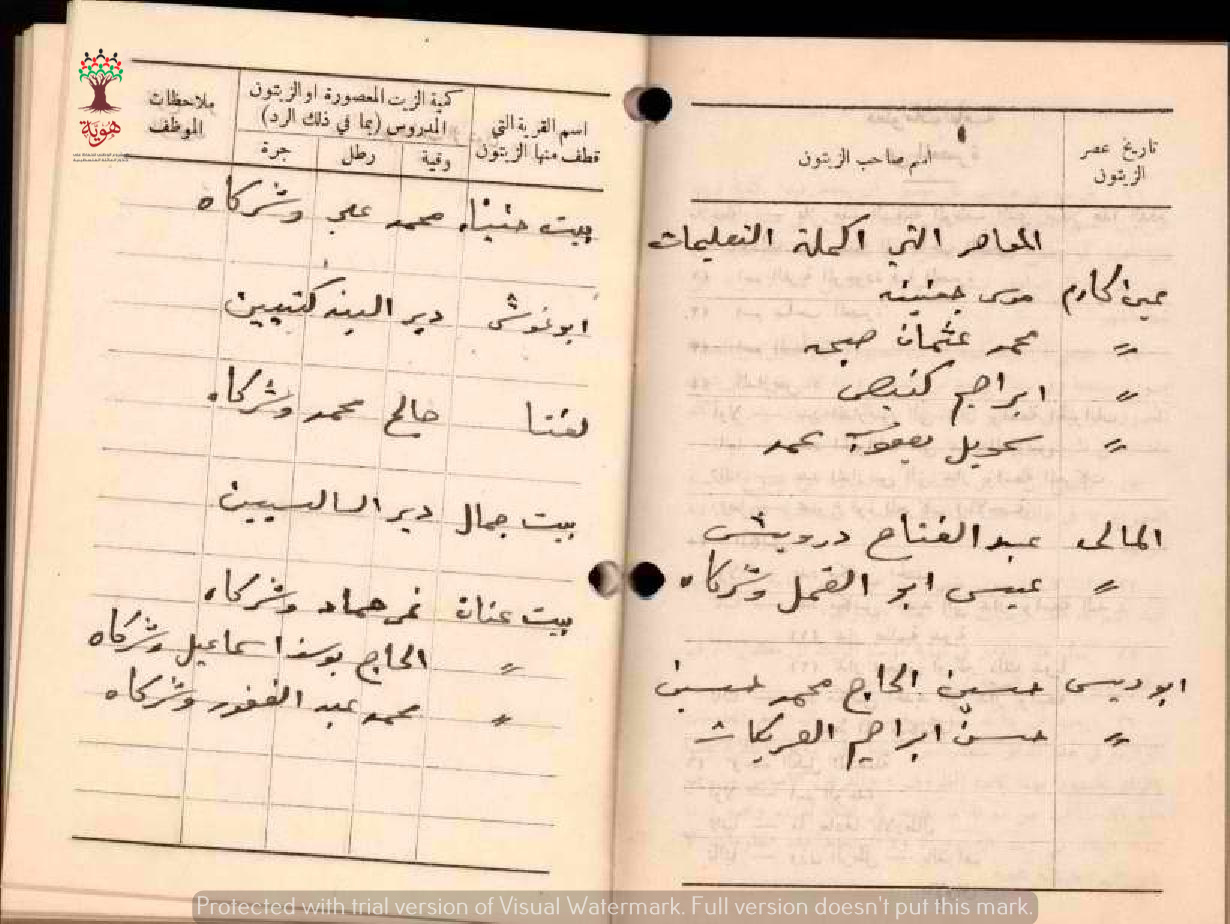 تاريخ عصر الزيتون
اسم صاحب الزيتون
المعاصر التي اكملة التعليمات
عين كارم موسى جعنينه
〃 محمد عثمان صبحه
〃 ابراهيم كنيص
〃 سحويل يعقوب محمد
المالحه عبد الفتاح درويش
〃 عيسى ابو القمل وشركاه
ابو ديس حسين الحاج محمد حسين
〃 حسن ابراهيم العريكات
اسم القرية التي قطف منها الزيتون
كمية الزيت المعصورة او الزيتون
المدروس (بما في ذلك الرد)
وقية رطل جرة
ملاحظات الموظف
بيت حنينا محمد علي وشركاه
ابو غوش دير البندكتيين
لفتا صالح محمد وشركاه
بيت جمال دير السالسيين
بيت عنان نمر حماد وشركاه
〃 الحاج يوسف اسماعيل وشركاه
〃 محمد عبد الغفور وشركاه
هوية
Protected with trial version of Visual Watermark. Full version doesn't put this mark.